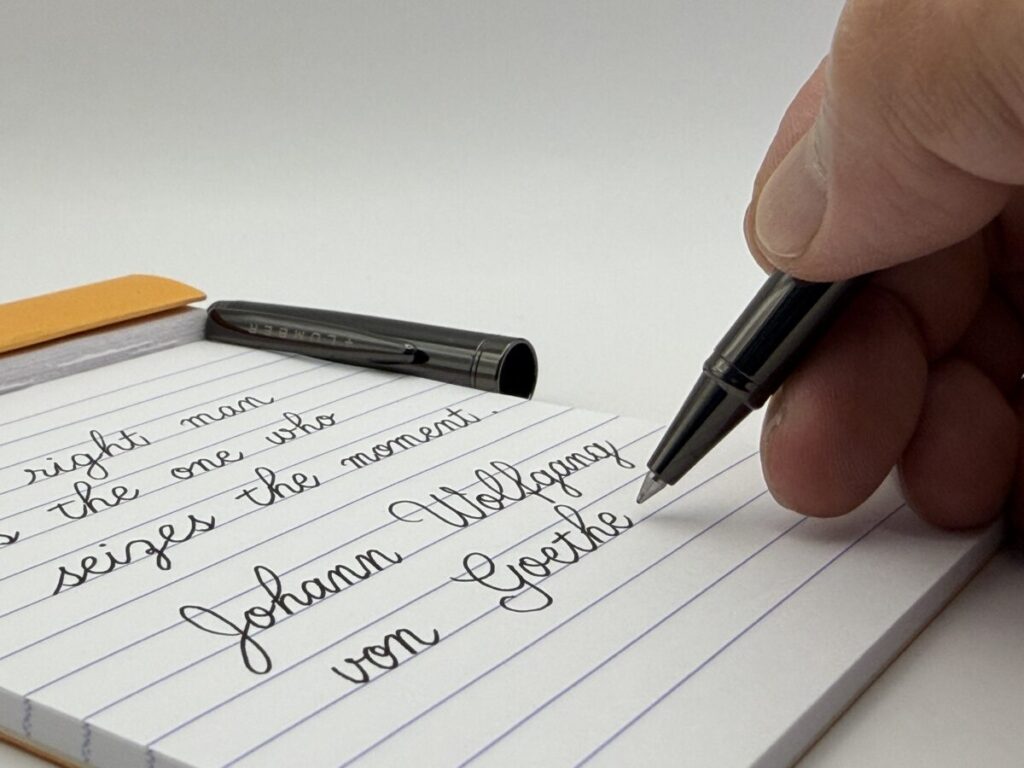 right man
s the one who
seizes the moment.
Johann Wolfgang
von Goethe